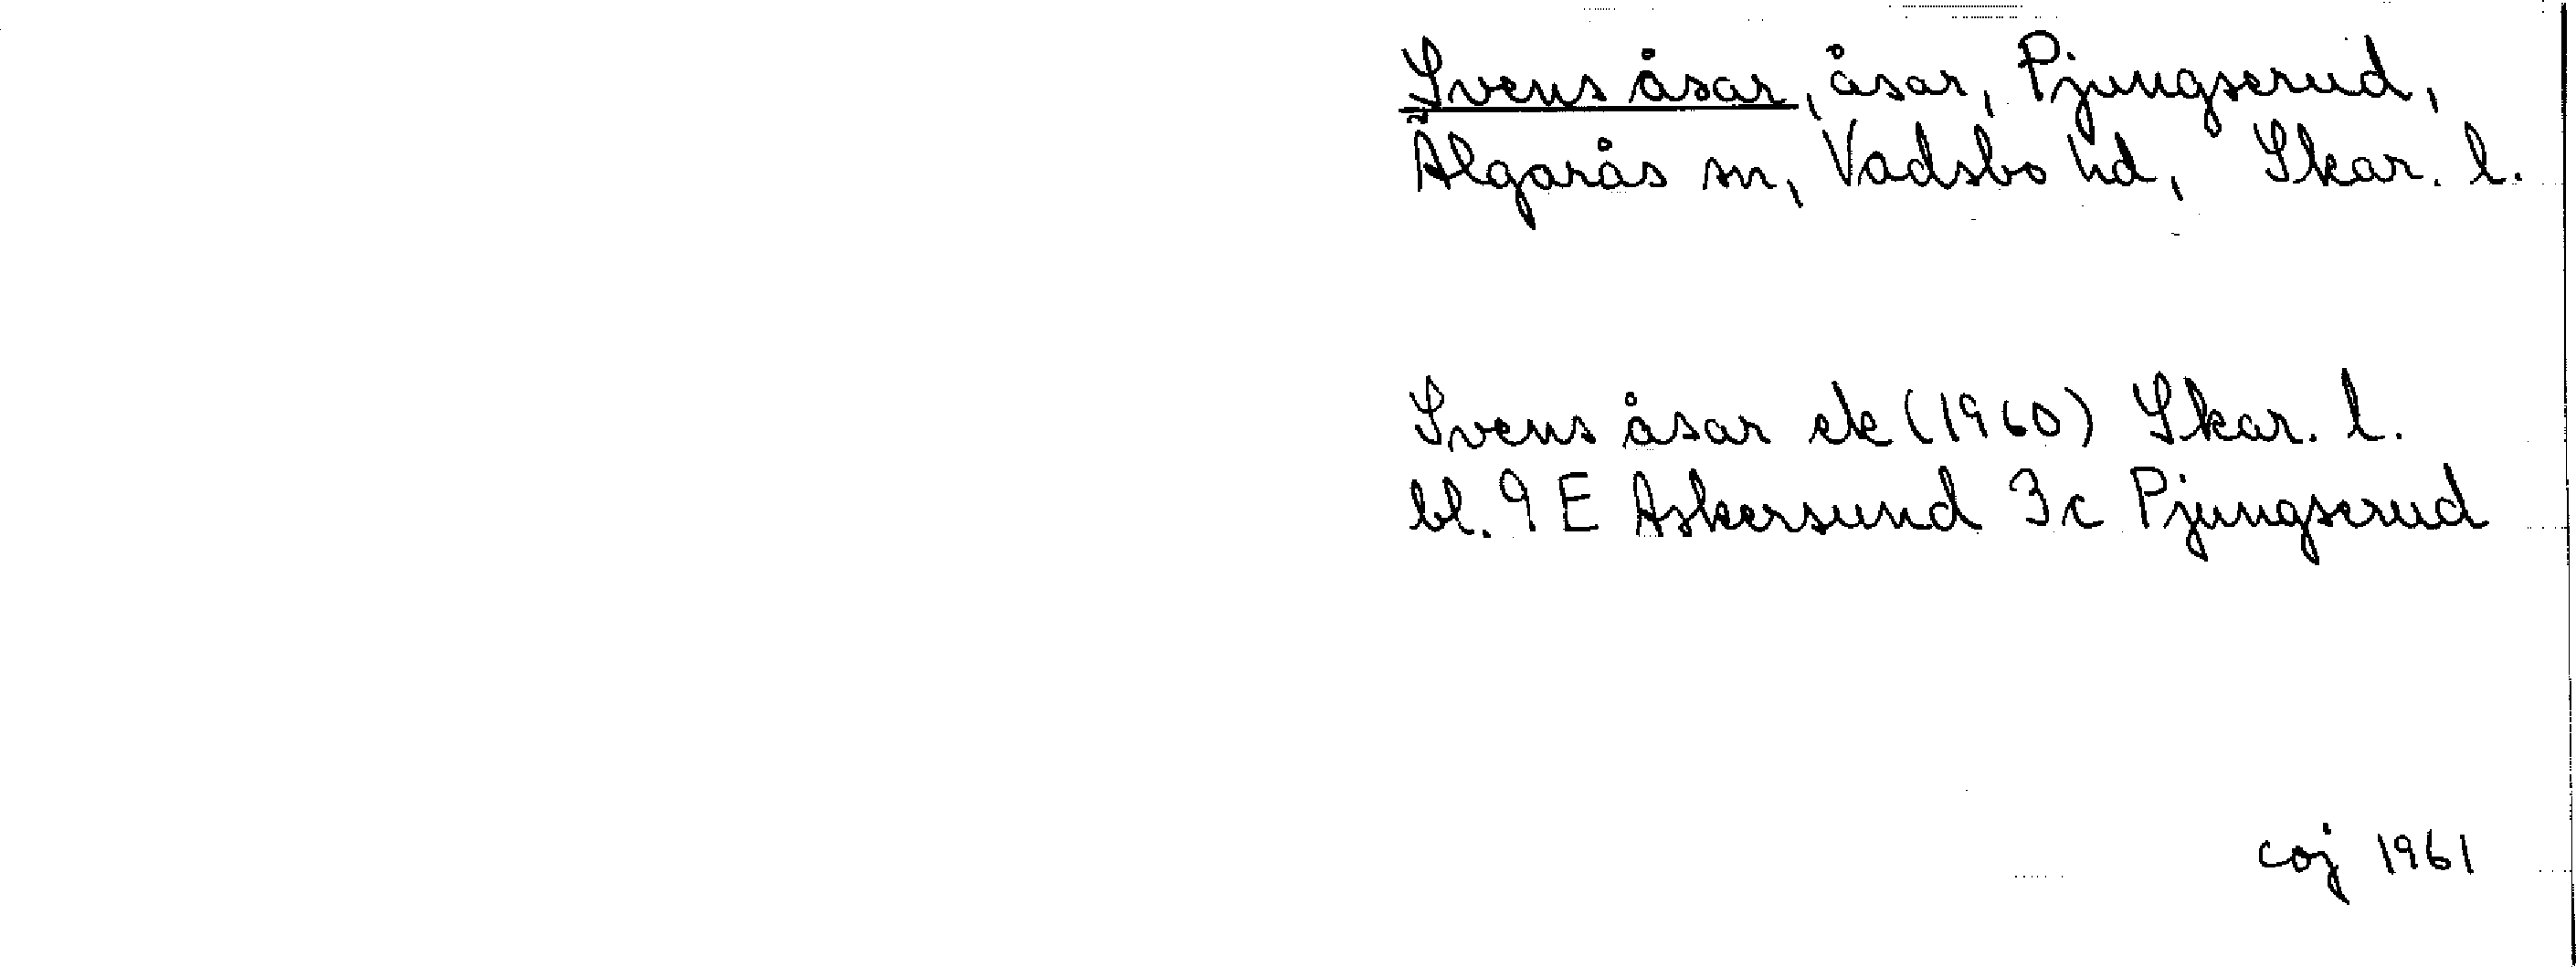 Svens åsar, åsar, Pjungserud,
Älgarås sn, Vadsbo hd, Skar. l.
Svens åsar ek (1960) Skar. l.
bl. 9 E Askersund 3c Pjungserud
coj 1961